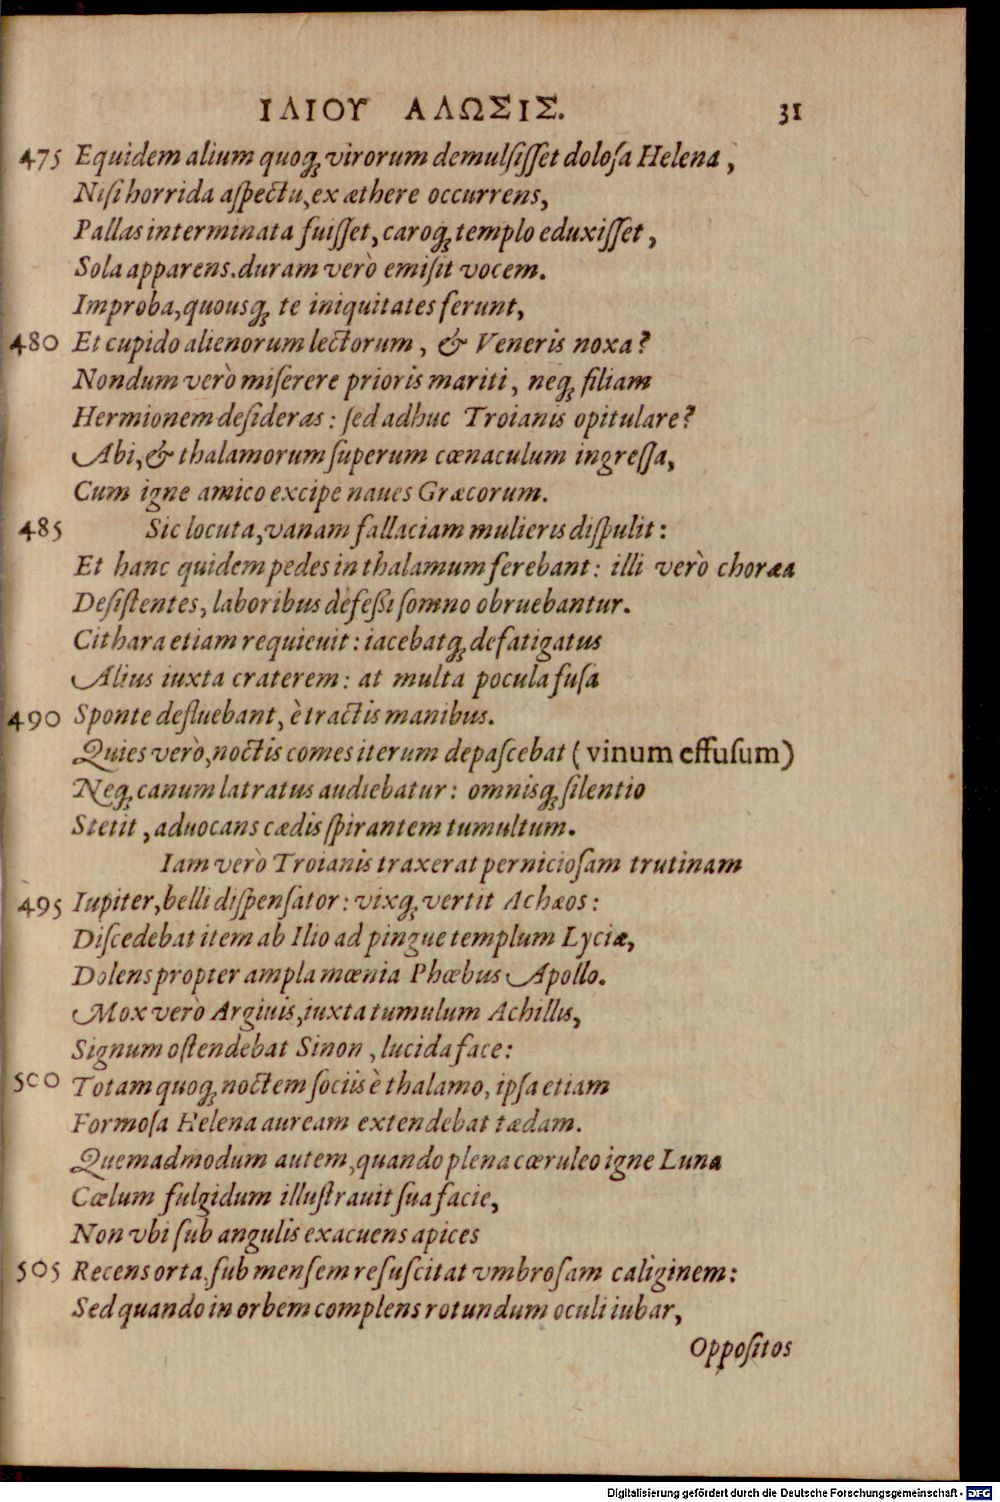 ΙΛΙΟΥ ΑΛΩΣΙΣ. 31
475 Equidem alium quoq́; virorum demulſiſſet doloſa Helena,
Niſi horrida aſpectu, ex æthere occurrens,
Pallas interminata fuiſſet, caroq́; templo eduxiſſet,
Sola apparens. duram verò emiſit vocem.
Improba, quousq́; te iniquitates ferunt,
480 Et cupido alienorum lectorum, & Veneris noxa?
Nondum verò miſerere prioris mariti, neq́; filiam
Hermionem deſideras: ſed adhuc Troianis opitulare?
Abi, & thalamorum ſuperum cœnaculum ingreſſa,
Cum igne amico excipe naues Græcorum.
485 Sic locuta, vanam fallaciam mulieris diſpulit:
Et hanc quidem pedes in thalamum ferebant: illi verò choræa
Deſiſtentes, laboribus defeßi ſomno obruebantur.
Cithara etiam requieuit: iacebatq́; defatigatus
Alius iuxta craterem: at multa pocula fuſa
490 Sponte defluebant, è tractis manibus.
Quies verò, noctis comes iterum depaſcebat (vinum effuſum)
Neq́; canum latratus audiebatur: omnisq́; ſilentio
Stetit, aduocans cædis ſpirantem tumultum.
Iam verò Troianis traxerat pernicioſam trutinam
495 Iupiter, belli diſpenſator: vixq́; vertit Achæos:
Diſcedebat item ab Ilio ad pingue templum Lyciæ,
Dolens propter ampla mœnia Phœbus Apollo.
Mox verò Argiuis, iuxta tumulum Achillis,
Signum oſtendebat Sinon, lucida face:
500 Totam quoq́; noctem ſociis è thalamo, ipſa etiam
Formoſa Helena auream extendebat tædam.
Quemadmodum autem, quando plena cœruleo igne Luna
Cœlum fulgidum illuſtrauit ſua facie,
Non vbi ſub angulis exacuens apices
505 Recens orta, ſub menſem reſuſcitat vmbroſam caliginem:
Sed quando in orbem complens rotundum oculi iubar,
Oppoſitos
Digitalisierung gefördert durch die Deutsche Forschungsgemeinschaft - DFG